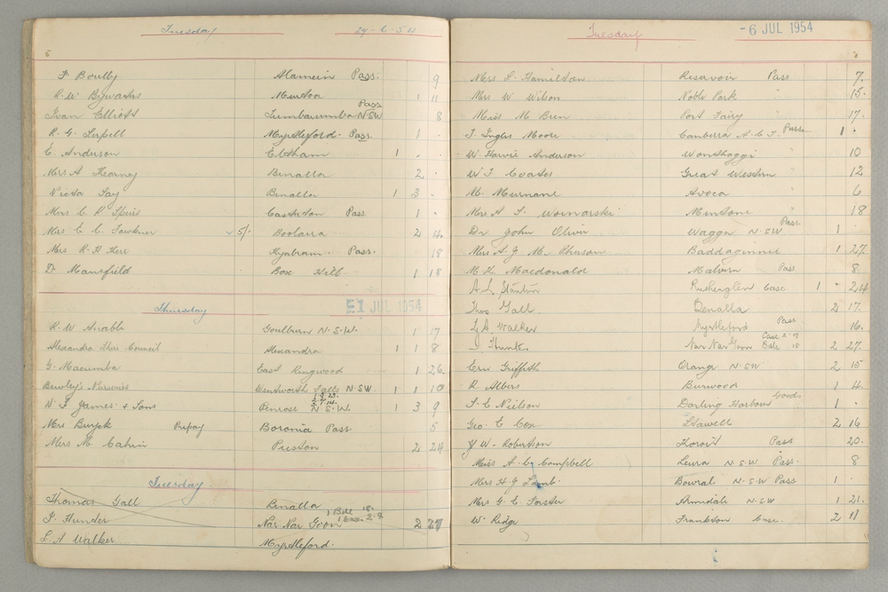 Tuesday 29-6-54
F Boully Alamein Pass. 9
R. W. Bywaters Murtoa 1 11
Ivan Elliott Tumbarumba N.S.W Pass 8
R. G. Myrtleford. Pass 1 .
E. Anderson Eltham 1 . .
Mrs A Kearney Benalla 2 .
Benalla 1 3 .
Mrs C R Casterton Pass 1 .
Mrs C. C. Fawkner 5/- Boolarra 2 14.
Mrs R. H Kerr Kyabram. Pass. 18
Dr. Mansfield Box Hill 1 18
Thursday 1 JUL 1954
R. W. Goulburn N.S.W. 1 17
Alexandra Shire Council Alexandra 1 1 8
G. Macumba East Ringwood 1 26
Nurseries Wentworth Falls N.S.W 1 1 10
W. F James & Sons Penrose N.S.W. 1 3 9
Mrs Prepay Boronia Pass 5
Miss M. Preston 2 24
Tuesday
Thomas Gall Benalla
F. Hunder Nar Nar Goon 1 Bdle 18. 1 Case 2.9 2 27
L A Walker Myrtleford.
Tuesday -6 JUL 1954
Mrs F. Hamilton Reservoir Pass 7.
Mrs W Wilson Noble Park " 15.
Miss M Port Fairy " 17.
T Ingles Moore Canberra A.C.T Pass 1 .
W. Harvie Anderson Wonthaggi 10
W. T Coates Great Western " 12
M. Murnane Avoca " 6
Mrs A F. Mentone " 18
Dr John Oliver Wagga N.S.W Pass 1 .
Mrs A J. Mc Pherson Baddaginnie 1 27.
M. L. Macdonald Malvern Pass 8.
A. L. Stanton Rutherglen Case 1 . 24
Thos Gall. Benalla 2 17.
L. A. Walker Myrtleford Pass 16.
F. Hunter Nar Nar Goon Case 2-9 Bdle 18 2 27.
Eric Griffith Orange N.S.W 2 15
R. Albers Burwood 1 14.
F. C Neilson Darling Harbour Goods 1 .
Geo. E Cox Stawell 2 16
J W. Robertson Koroit Pass 20.
Miss A. Campbell Leura N.S.W Pass. 8
Mrs H G Lamb. Bowral N.S.W Pass 1 .
Mrs G. E Forster Armidale N.S.W 1 21.
W. Ridge Frankston Case. 2 11